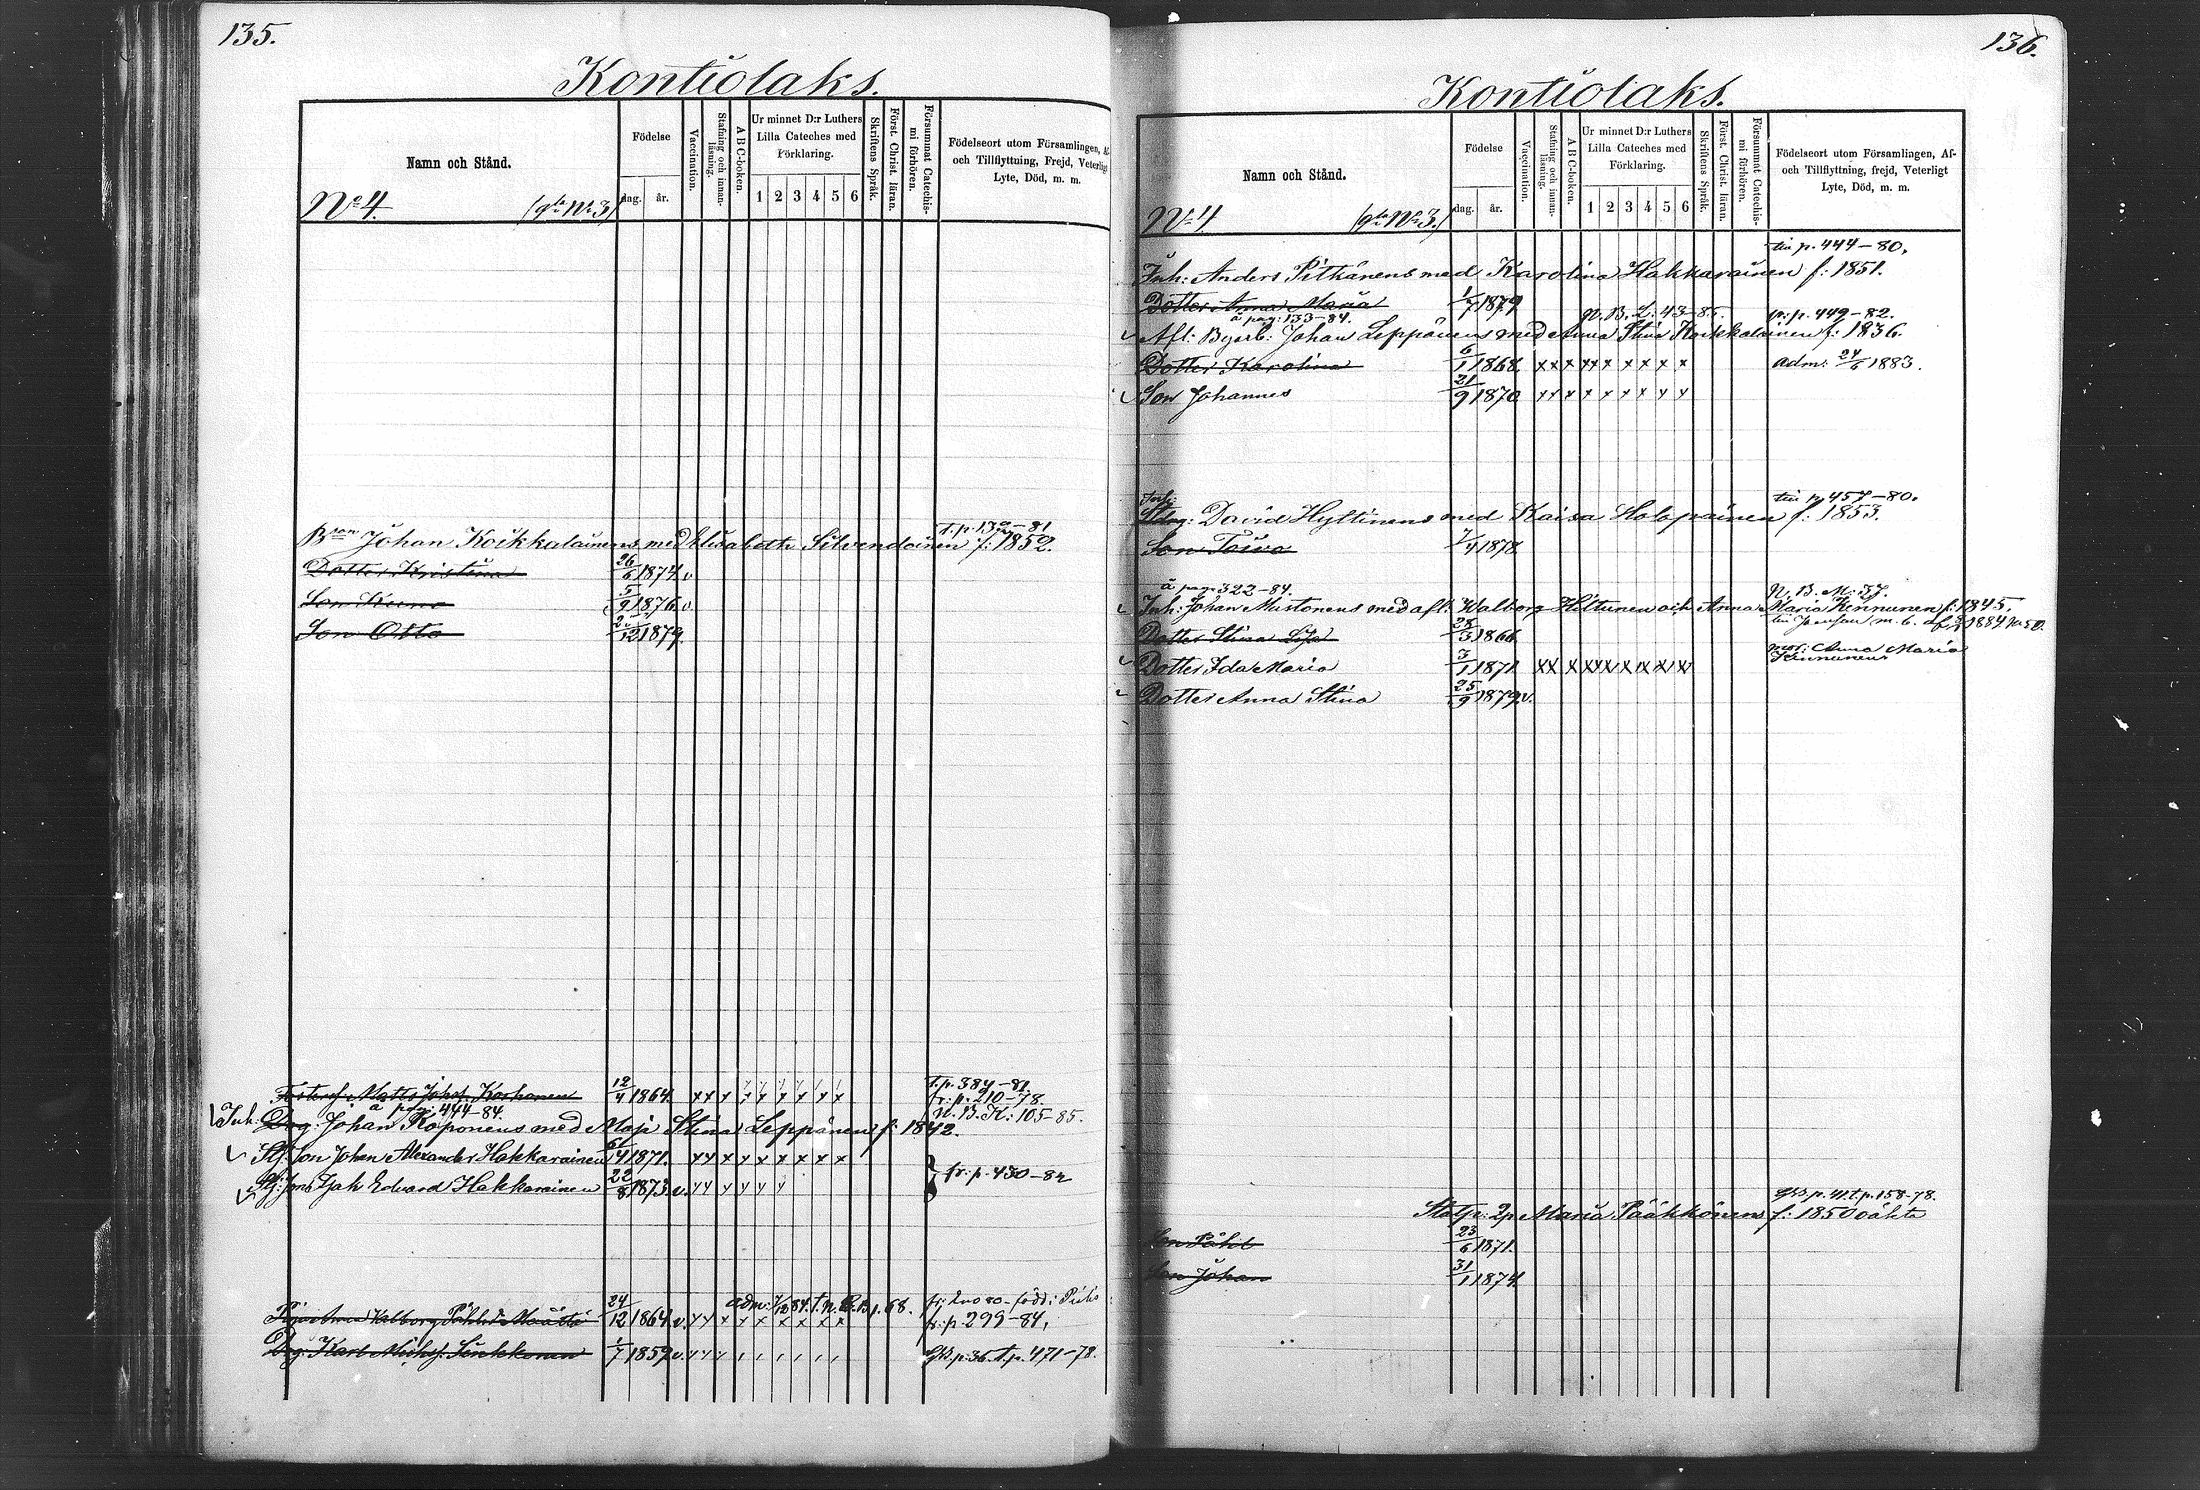 135.
Kontiolaks.
Namn och Stånd.
Födelse
dag. år.
Vaccination.
Stafning och innan-
läsning.
ABC-boken.
Ur minnet D:r Luthers
Lilla Cateches med
Förklaring.
1 2 3 4 5 6
Skriftens Språk.
Först. Christ. läran.
Försummat Catechis-
mi förhören.
Födelseort utom Församlingen, Af-
och Tillflyttning, Frejd, Veterligt
Lyte, Död, m. m.
No 4. (gla No 3.)
T. p. 132-81
Bson Johan Koikkalainens med Elisabeth Silvendoinen f: 1852.
Dotter Kristina 26/6 1874. v
Son Kuno 5/9 1876. v.
Son Otto 12 1879.
T. p. 384-81.
Fosters. Matts Johs. Korhonen 12/4 1864. x x x x x x x x x fr: p. 210-78.
à pag: 444-84. N. B. K: 105-85.
Inh: Drg: Johan Koponens med Maja Stina Leppänen f: 1842.
Stf. Son Johan Alexander Hakkarainen 6/4 1871. x x x x x x x x x
Stf: Son Isak Edvard Hakkarainen 22/8 1873. v. x x x x x x fr: p. 430-82
24/12 1864. v. x x x x x x x x x
fr: p. 299-84.
Drg: Karl Michs. Sinkkonen 1/7 1859. v. Gkb. p. 36. t. p. 471-78.
136.
Kontiolaks.
Namn och Stånd.
Födelse
dag. år.
Vaccination.
Stafning och innan-
läsning.
ABC-boken.
Ur minnet D:r Luthers
Lilla Cateches med
Förklaring.
1 2 3 4 5 6
Skriftens Språk.
Först. Christ. läran.
Försummat Catechis-
mi förhören.
Födelseort utom Församlingen, Af-
och Tillflyttning, frejd, Veterligt
Lyte, Död, m. m.
No 4 (gla No 3.)
till p. 444-80.
Inh: Anders Pitkänens med Karolina Hakkarainen f: 1851.
Dotter Anna Maria 1/7 1879
à pag: 133-84. N. B. L: 43-85. fr: p. 449-82.
Afl: Bysb: Johan Leppänens med Anna Stina Koikkalainen f: 1836.
Dotter Karolina 6/1 1868. x x x x x x x x x adm: 24/6 1883.
Son Johannes 21/9 1870 x x x x x x x x x
till p. 457-80.
Inh: Drg: David Hyttinens med Kaisa Holopainen f: 1853.
Son Toivo 7/4 1878.
à pag: 322-84. N. B. M: 37.
Inh: Johan Mustonens med afl: Walborg Hiltunen och Anna Maria Kinnunen f: 1845.
Dotter Stina Lisa 28/3 1866.
mor: Anna Maria
Kinnunen
Dotter Ida Maria 3/1 1871 x x x x x x x x x
Dotter Anna Stina 25/9 1879. v.
Gkb. p. 41. t. p. 158-78.
Statp: 2p Maria Pääkkönens f: 1850 oäkta
Son Påhl 23/6 1871.
Son Johan 31/1 1874.